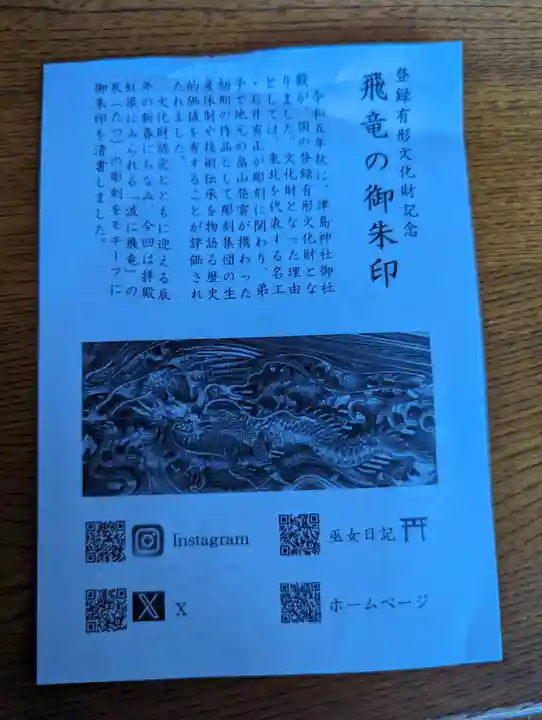 登録有形文化財記念
飛竜の御朱印
令和五年秋に、津島神社御社
殿が、国の登録有形文化財とな
りました。文化財となった理由
としては、東北を代表する名工
・石井有正が彫刻に関わり、弟
子で地元の畠山発雲が携わった
初期の作品として彫刻集団の生
産体制や技術伝承を物語る歴史
的価値を有することが評価され
たれました。
文化財認定とともに迎える辰
年の新春にちなみ、今回は拝殿
虹梁にみられる「波に飛竜」の
辰(たつ)の彫刻をモチーフに
御朱印を清書しました。
Instagram
巫女日記
X
ホームページ